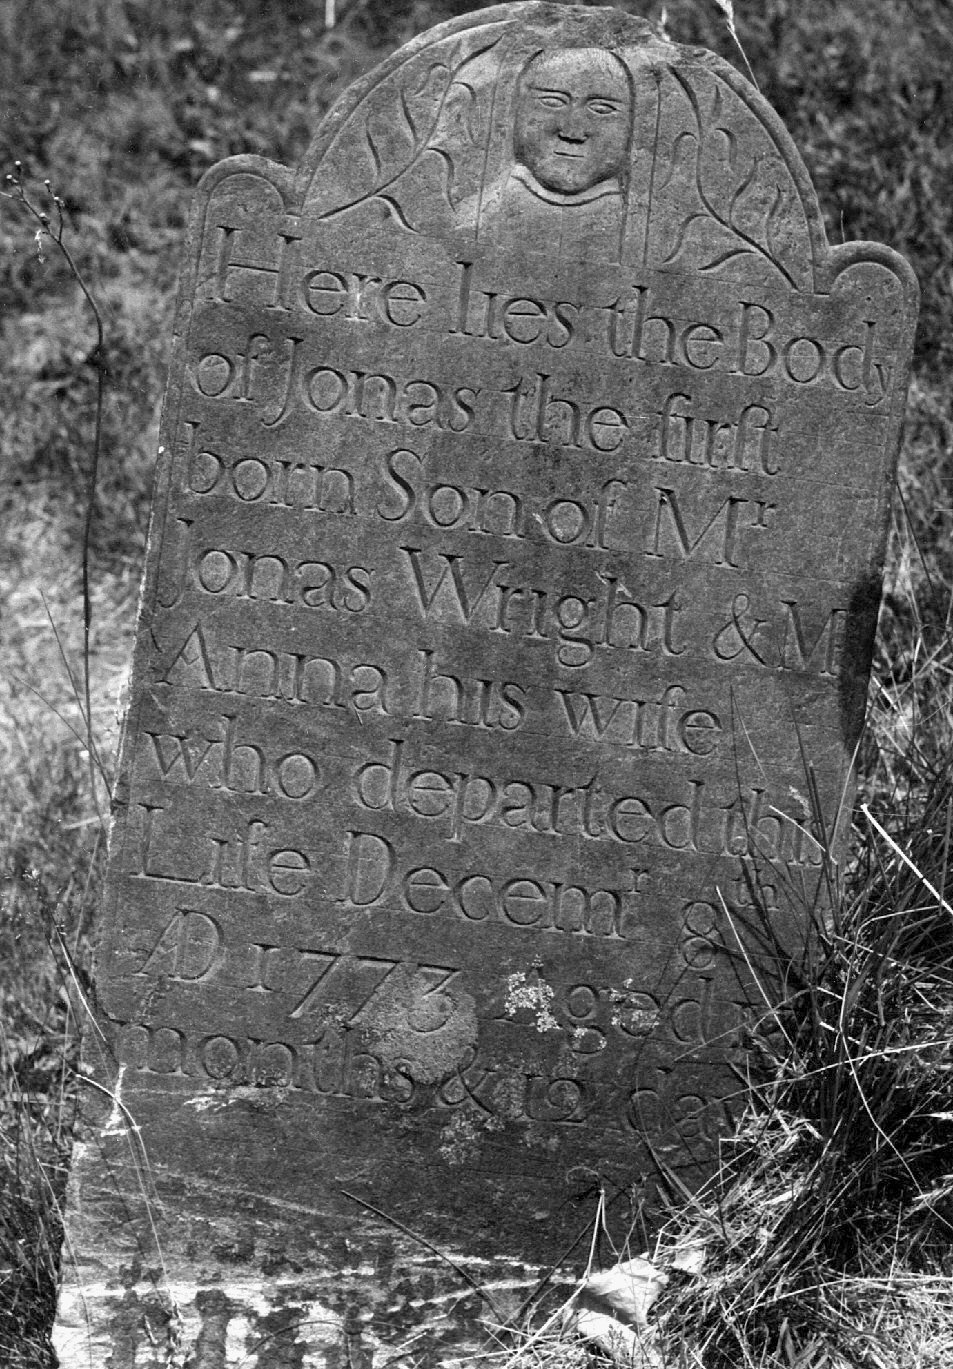 Here lies the Body
of Jonas the firſt
born Son of Mr
Jonas Wright & M
Anna his wife
who departed this
Life Decemr 8th
AD 1773 Aged
months & 12 day